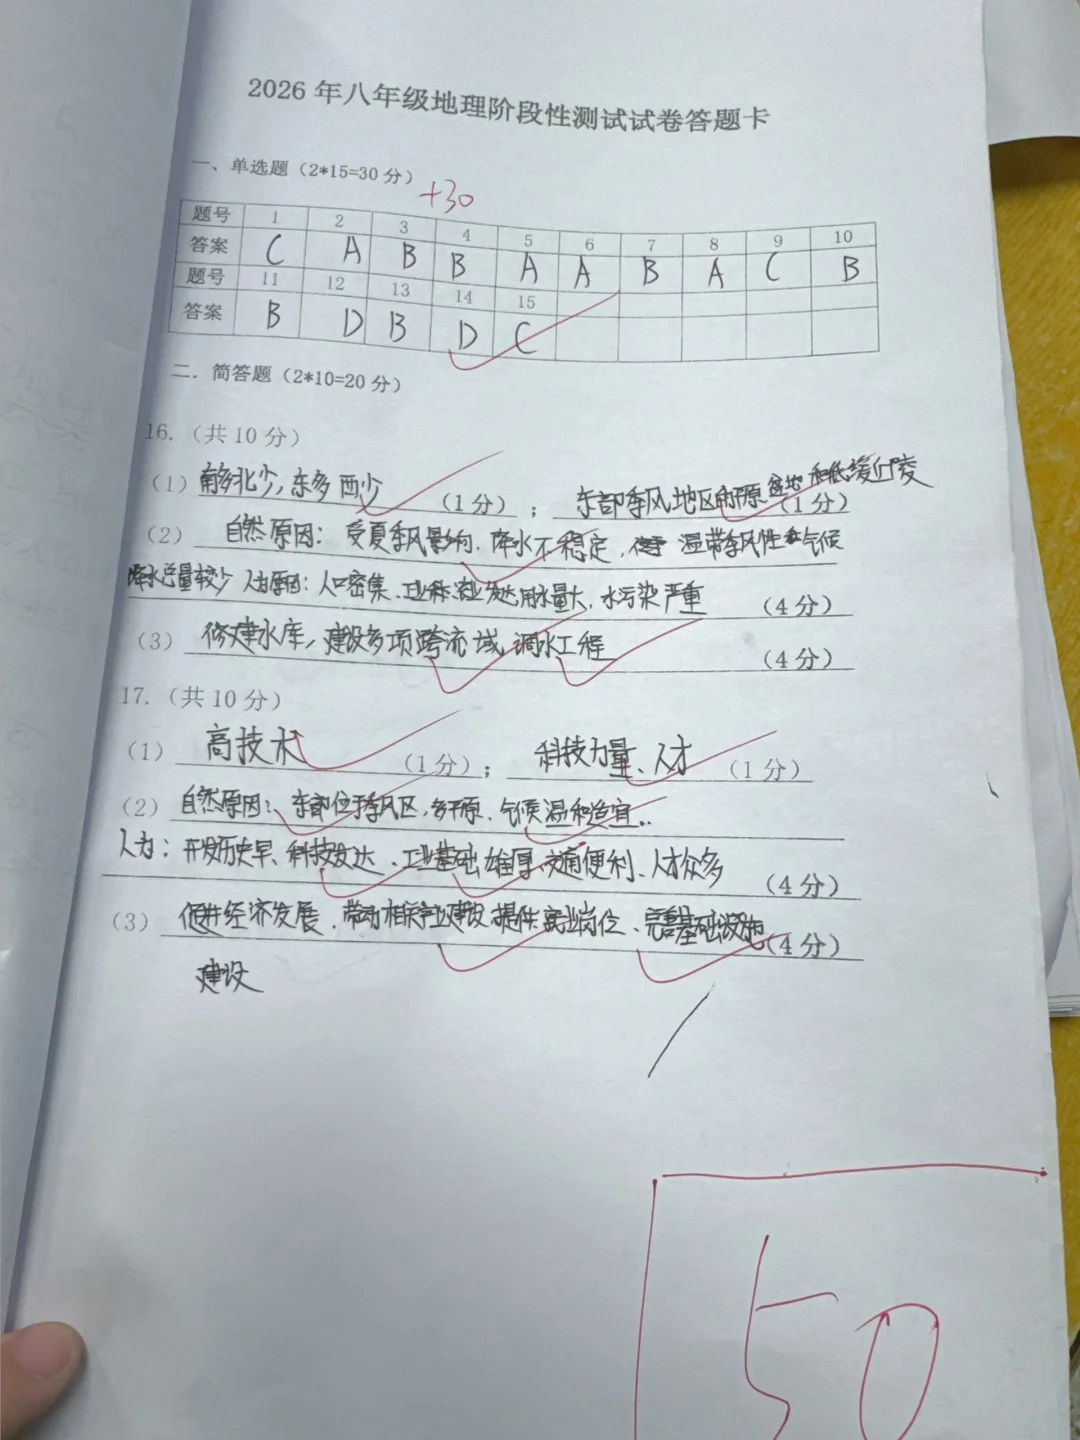 2026年八年级地理阶段性测试试卷答题卡
一、单选题（2*15=30分）
+30
题号 1 2 3 4 5 6 7 8 9 10
答案 C A B B A A B A C B
题号 11 12 13 14 15
答案 B D B D C
二．简答题（2*10=20分）
16.（共10分）
（1）南多北少，东多西少（1分）；东部季风地区的平原盆地和低缓丘陵（1分）
（2）自然原因：受夏季风影响，降水不稳定，温带季风性气候
降水总量较少 人为原因：人口密集、工业和农业发达用水量大、水污染严重（4分）
（3）修建水库，建设多项跨流域调水工程（4分）
17.（共10分）
（1）高技术（1分）；科技力量、人才（1分）
（2）自然原因：东部位于季风区，多平原、气候温和适宜..
人为：开发历史早、科技发达、工业基础雄厚、交通便利、人才众多（4分）
（3）促进经济发展、带动相关产业建设、提供就业岗位、完善基础设施（4分）
建设
50